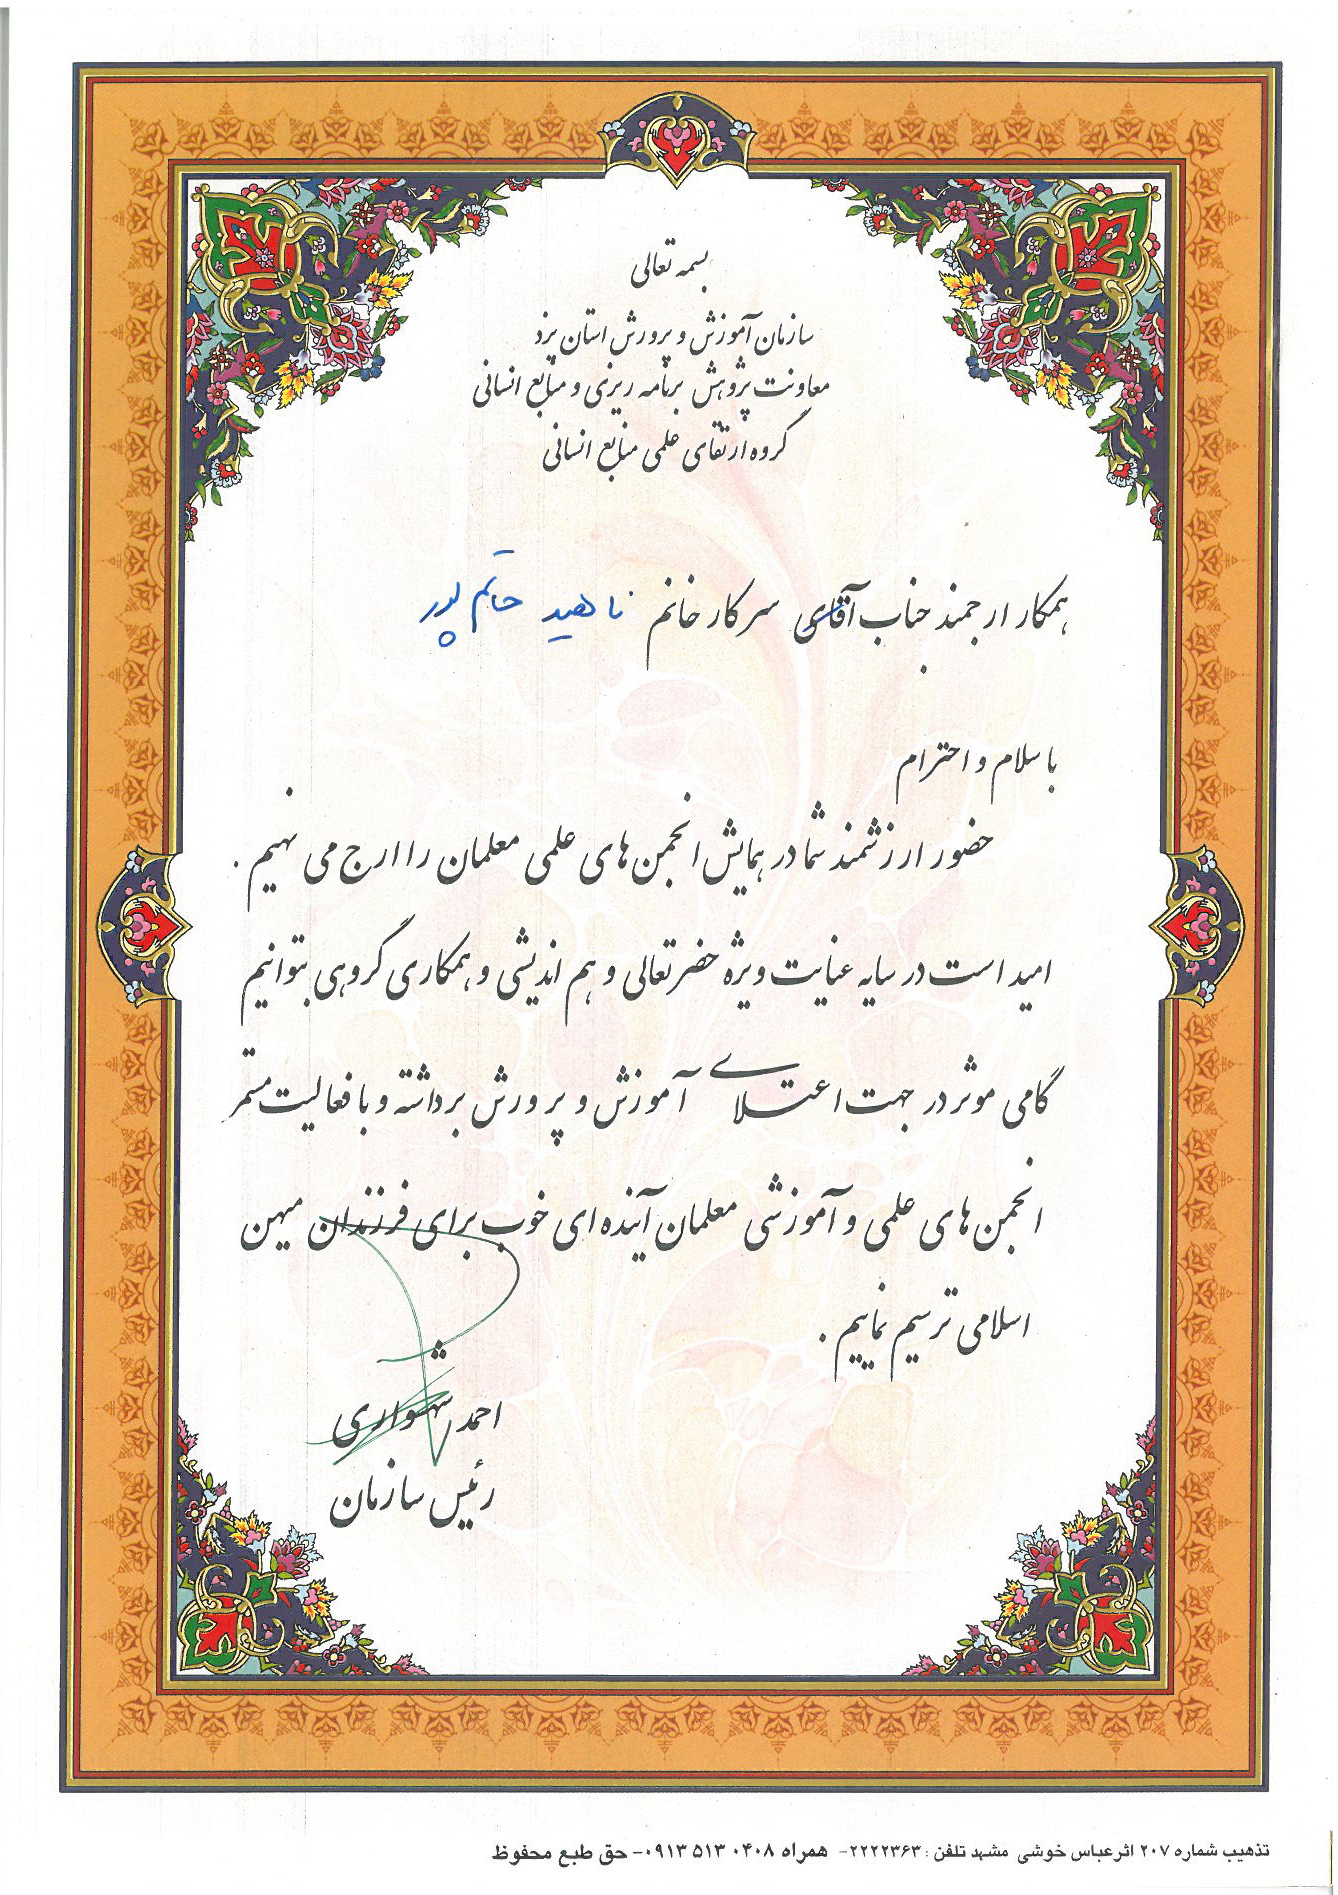 بسمه تعالی
سازمان آموزش و پرورش استان یزد
معاونت پژوهش برنامه ریزی و منابع انسانی
گروه ارتقای علمی منابع انسانی
همکار ارجمند جناب آقای سرکار خانم ناهید حاتم پور
با سلام و احترام
حضور ارزشمند شما در همایش انجمن های علمی معلمان را ارج می نهیم .
امید است در سایه عنایت ویژه حضرتعالی و هم اندیشی و همکاری گروهی بتوانیم
گامی موثر در جهت اعتلای آموزش و پرورش برداشته و با فعالیت مستمر
انجمن های علمی و آموزشی معلمان آینده ای خوب برای فرزندان میهن
اسلامی ترسیم نماییم .
احمد شهسواری
رئیس سازمان
تذهیب شماره ۲۰۷ اثر عباس خوشی مشهد تلفن : ۲۲۲۲۳۶۳- همراه ۰۴۰۸ ۵۱۳ ۰۹۱۳- حق طبع محفوظ